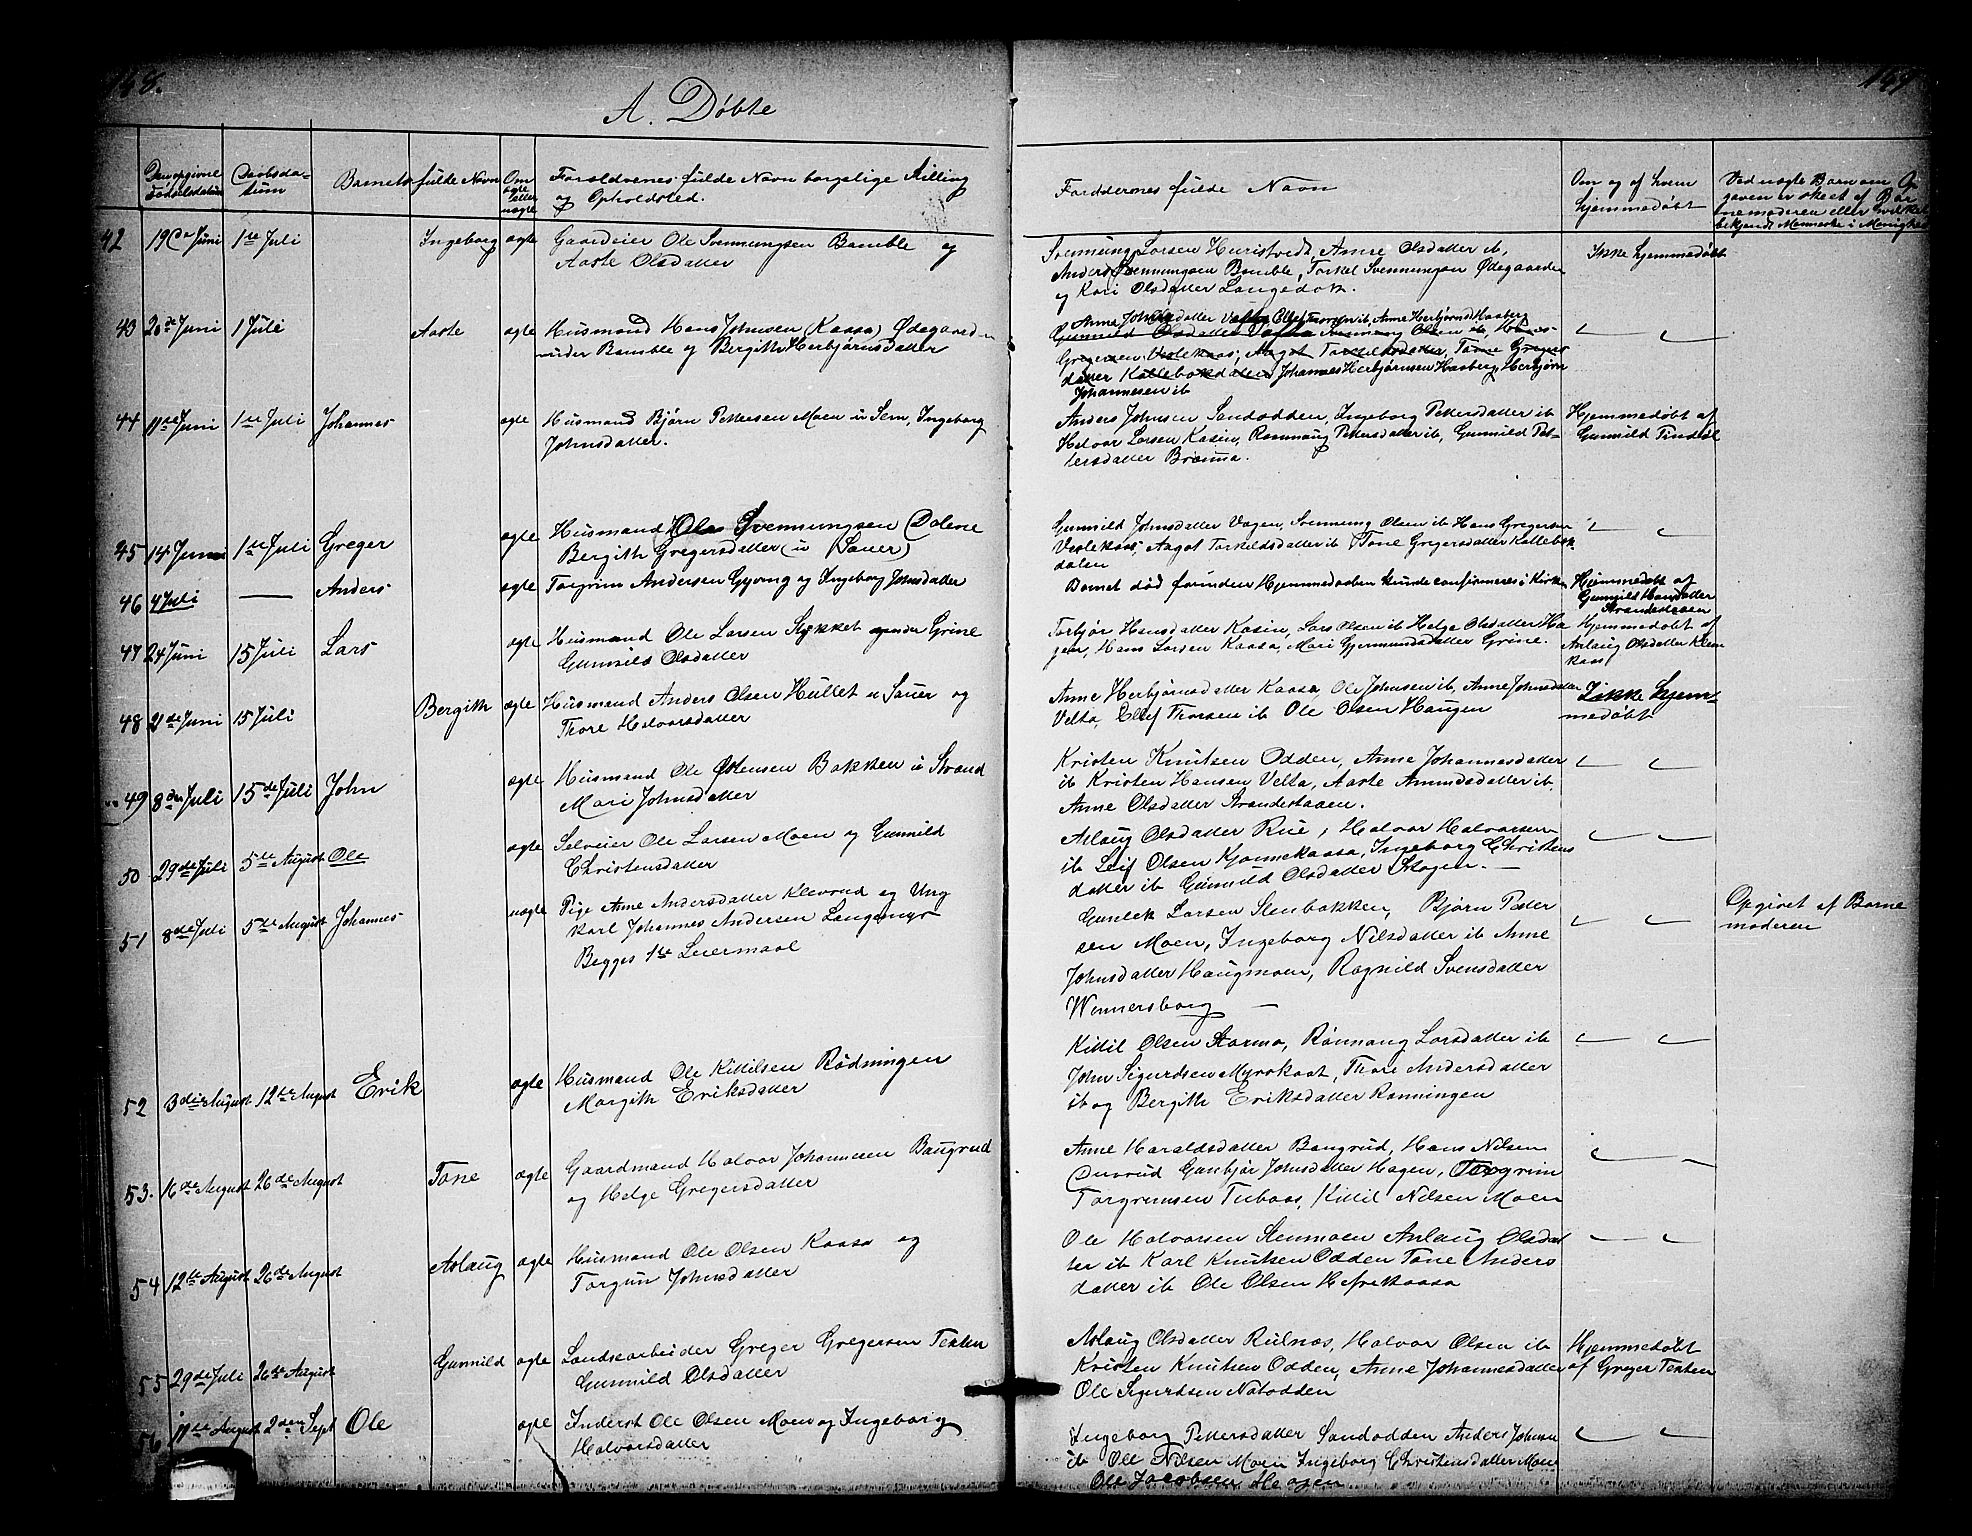 A. Döbte
Den opgivne Födselsdatum
Daabsdatum
Barnets fulde Navn
Om ægte eller uægte
Forældrenes fulde Navn borgelige Stilling
og Opholdsted.
Faddernes fulde Navn
Om og af hvem
hjemmedøbt
42 19de Juni 1ste Juli Ingeborg ægte Gaardeier Ole Svennungsen Bamble og
Aaste Olsdatter
Svennung Larsen Anne Olsdatter ib,
Anders Svennungsen Bamble, Torkel Svennungsen Ødegaarden
og Kari Olsdatter Langedok.
Ikke hjemmedøbt
43 20de Juni 1 Juli Aaste ægte Husmand Hans Johnsen (Kaasa) Ødegaarden
under Bamble og Bergith Herbjørnsdatter
Anne Johnsdatter Ellef Thorsen ib, Anne Herbjørnsd Haaberg
Johannes Herbjørnsen Haaberg, Herbjørn
Johannesen ib
44 11te Juni 1ste Juli Johannes ægte Husmand Bjørn Pettersen Moen u Sem, Ingeborg
Johnsdatter.
Anders Johnsen Sandodden, Ingeborg Pettersdatter ib
Halvor Larsen Kasin, Rønnaug Pettersdatter ib, Gunnild Pet-
tersdatter
Hjemmedøbt af
Gunnild Tindøl
45 14 Juni 1ste Juli Greger ægte Husmand Ole Svennungsen Dalene
Bergith Gregersdatter (u Sauer)
Gunnild Johnsdatter Vagen, Svennung Olsen ib Hans Gregersen
Veslekaas, Aagot Torkildsdatter ib Tone Gregersdatter Kallebæk-
dalen
46 4 Juli — Anders ægte Torgrim Andersen Gyving og Ingeborg Johnsdatter
Barnet död forinden Hjemmedaaben kunde confirmeres i Kirken
Hjemmedøbt af
Gunnild Hansdatter
Strandestaaen
47 24 Juni 15 Juli Lars ægte Husmand Ole Larsen Stykket under Grine
Gunnild Olsdatter
Torbjør Hansdatter Kasin, Lars Olsen ib Helge Olsdatter Ha
gen, Hans Larsen Kaasa, Mari Gjermundsdatter Grine.
Hjemmedøbt af
Aslaug Olsdatter
kaas
48 21de Juni 15 Juli Bergith ægte Husmand Anders Olsen Hullet u Sauer og
Thore Halvorsdatter
Anne Herbjørnsdatter Kaasa, Ole Johnsen ib, Anne Johnsdatter
Velta, Ellef Thorsen ib Ole Olsen Haugen
Ikke hjem-
medøbt
49 8de Juli 15de Juli John ægte Husmand Ole Østensen Bakken u Strand
Mari Johnsdatter
Kristen Knutsen Odden, Anne Johannesdatter
ib Kristen Hansen Velta, Aaste Amundsdatter ib.
Anne Olsdatter Strandestaaen.
50 29de Juli 5te August Ole ægte Selveier Ole Larsen Moen og Gunnild
Christensdatter
Aslaug Olsdatter Rue, Halvor Halvorsen
ib Leif Olsen Kjonnekaasa, Ingeborg Christens
datter ib Gunnild Olsdatter Skogen. —
51 8de Juli 5te August Johannes uægte Pige Anne Andersdatter Klevrud og Ung
karl Johannes Andersen Langemyr
Begges 1ste Leiermaal
Gunlek Larsen Stenbakken, Bjørn Petter
sen Moen, Ingeborg Nilsdatter ib Anne
Johnsdatter Haugmoen, Ragnild Svensdatter
Wennersborg —
Opgivet af Barne
moderen
52 3die August 12te August Erik ægte Husmand Ole Kittilsen Rødningen
Margith Eriksdatter
Kittil Olsen Stormo, Rönnaug Larsdatter ib
John Sigurdsen Myrekaat, Thore Andersdatter
ib og Bergith Eriksdatter Rønningen
53. 16de August 26de August Tone ægte Gaardmand Halvor Johannesen Baugrud
og Helge Gregersdatter
Anne Haraldsdatter Baugrud, Hans Nilsen
Gunbjør Johnsdatter Hagen, Torgrim
Torgrimsen Tubaas, Kittil Nilsen Moen
54 12te August 26de August Aslaug ægte Husmand Ole Olsen Kaasa og
Torgun Johnsdatter
Ole Halvorsen Stenmoen Aslaug Olsdat
ter ib Karl Knutsen Odden Tone Anders
datter ib Ole Olsen Hefrekaasa
55 29de Juli 26de August Gunnild ægte Landsarbeider Greger Gregersen Texten
Gunnild Olsdatter
Aslaug Olsdatter Rulnæs, Halvor Olsen ib
Kristen Knutsen Odden, Anne Johannesdatter
Ole Sigurdsen Natodden
Hjemmedøbt
af Greger Texten
56 11te August 2den Sept Ole ægte Inderst Ole Olsen Moen og Ingeborg
Halvorsdatter
Ingeborg Pettersdatter Sandodden Anders Johnsen
ib Ole Nilsen Moen Ingeborg Christensdatter Moen
Ole Jacobsen Hagen